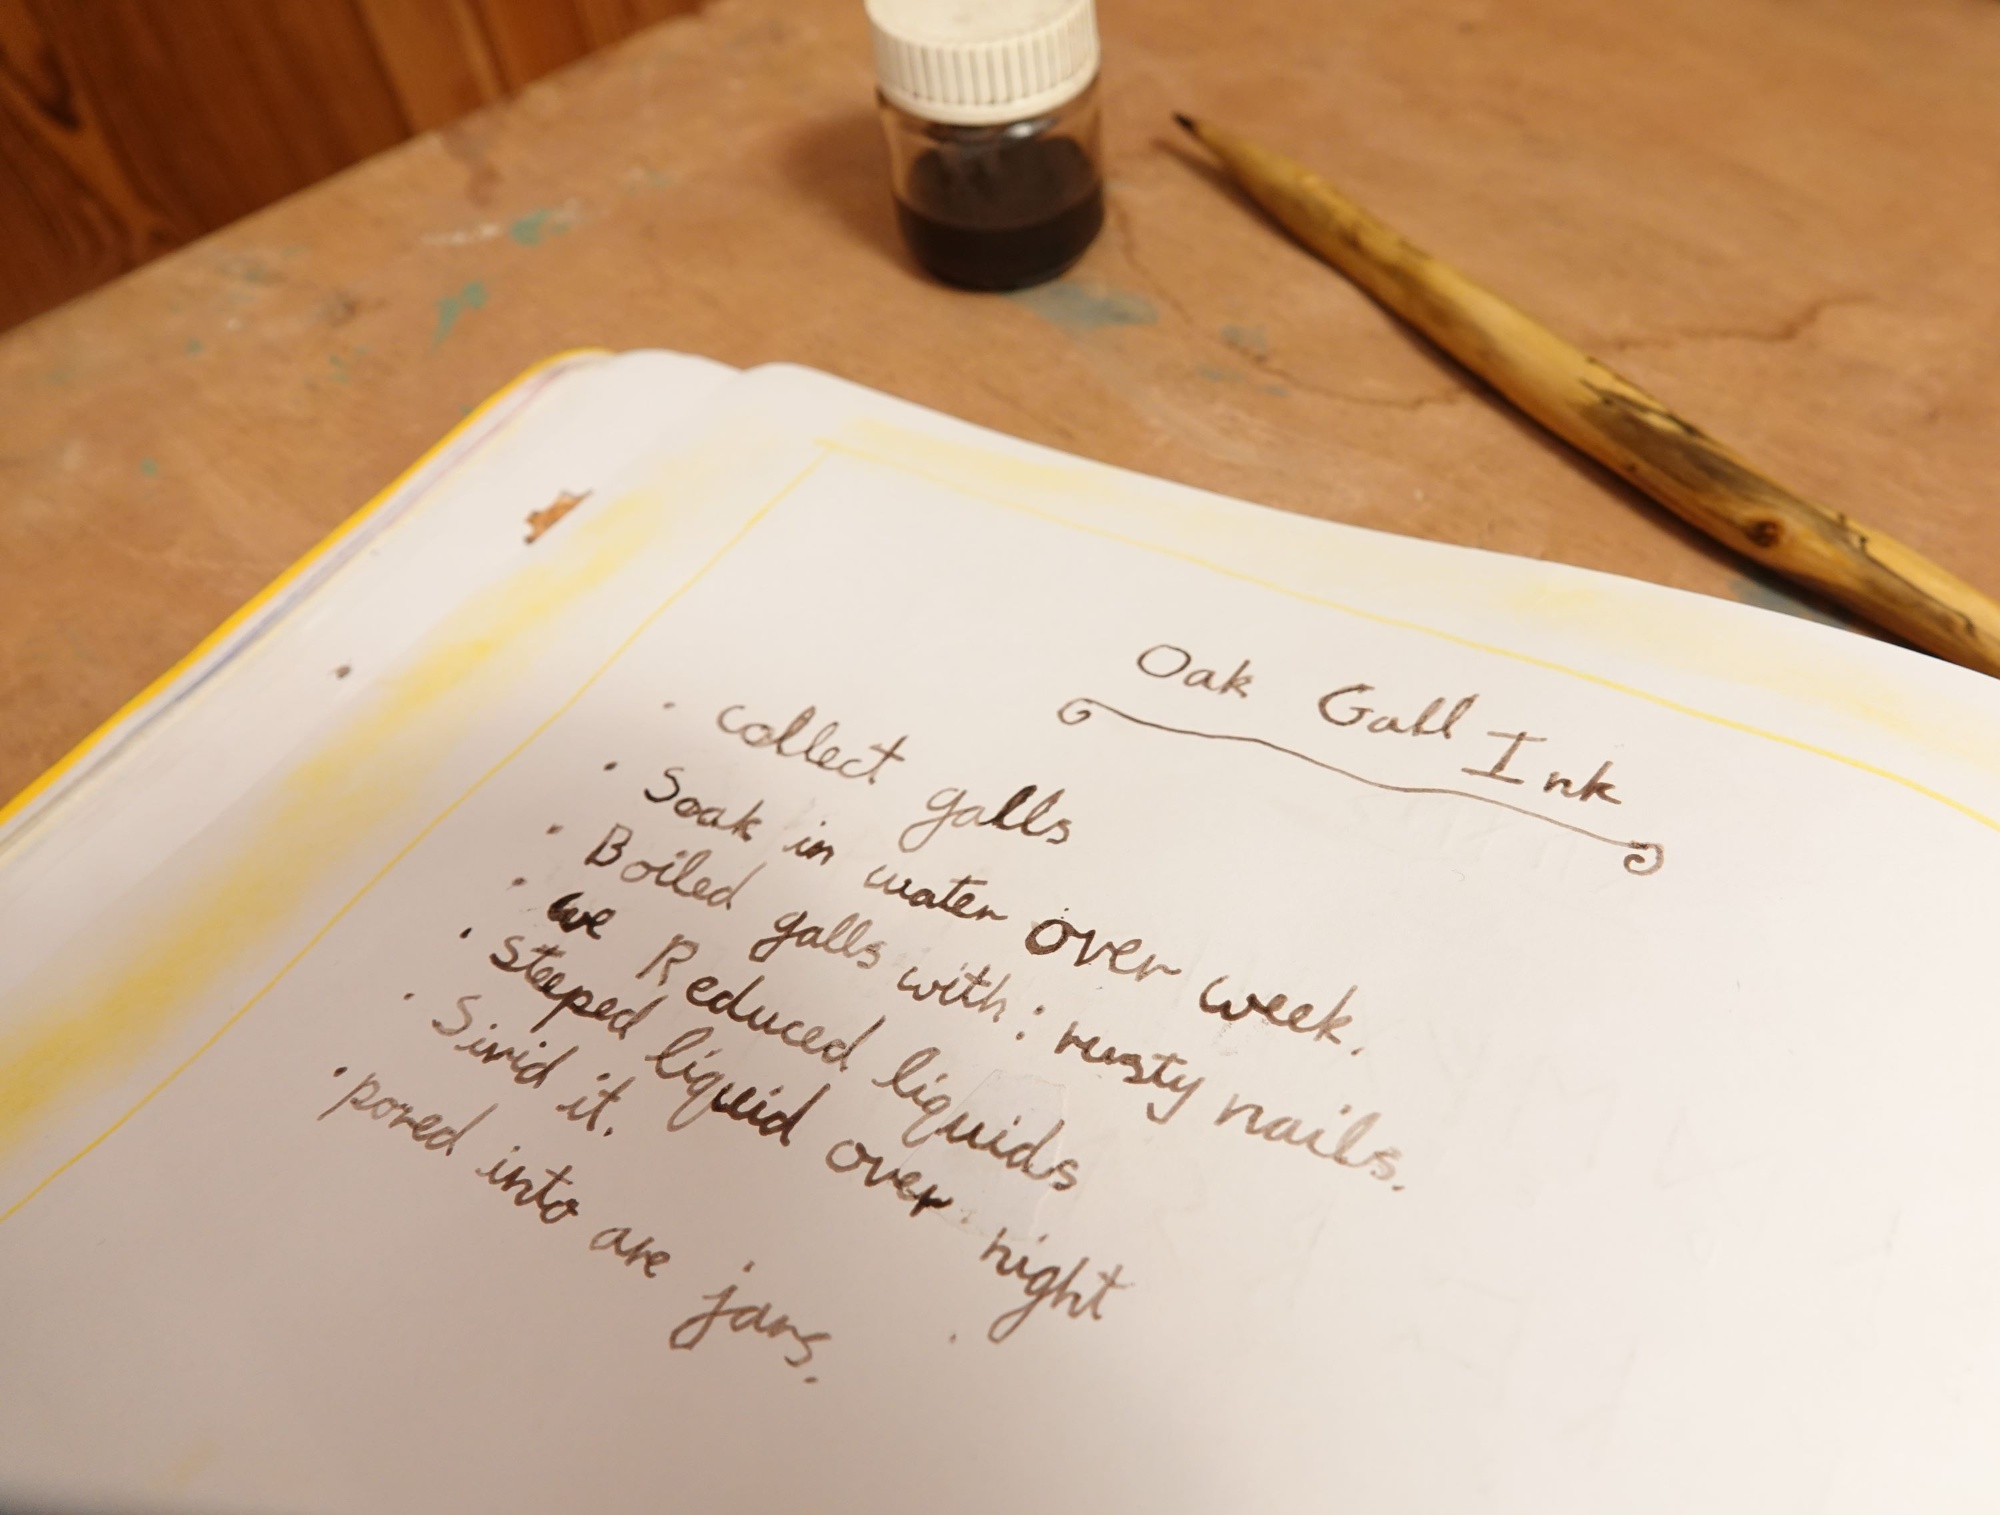 Oak Gall Ink
· collect galls
· Soak in water over week.
· Boiled galls with: rusty nails.
· we Reduced liquids
· steeped liquid over night
· Sivid it.
· pored into are jars.